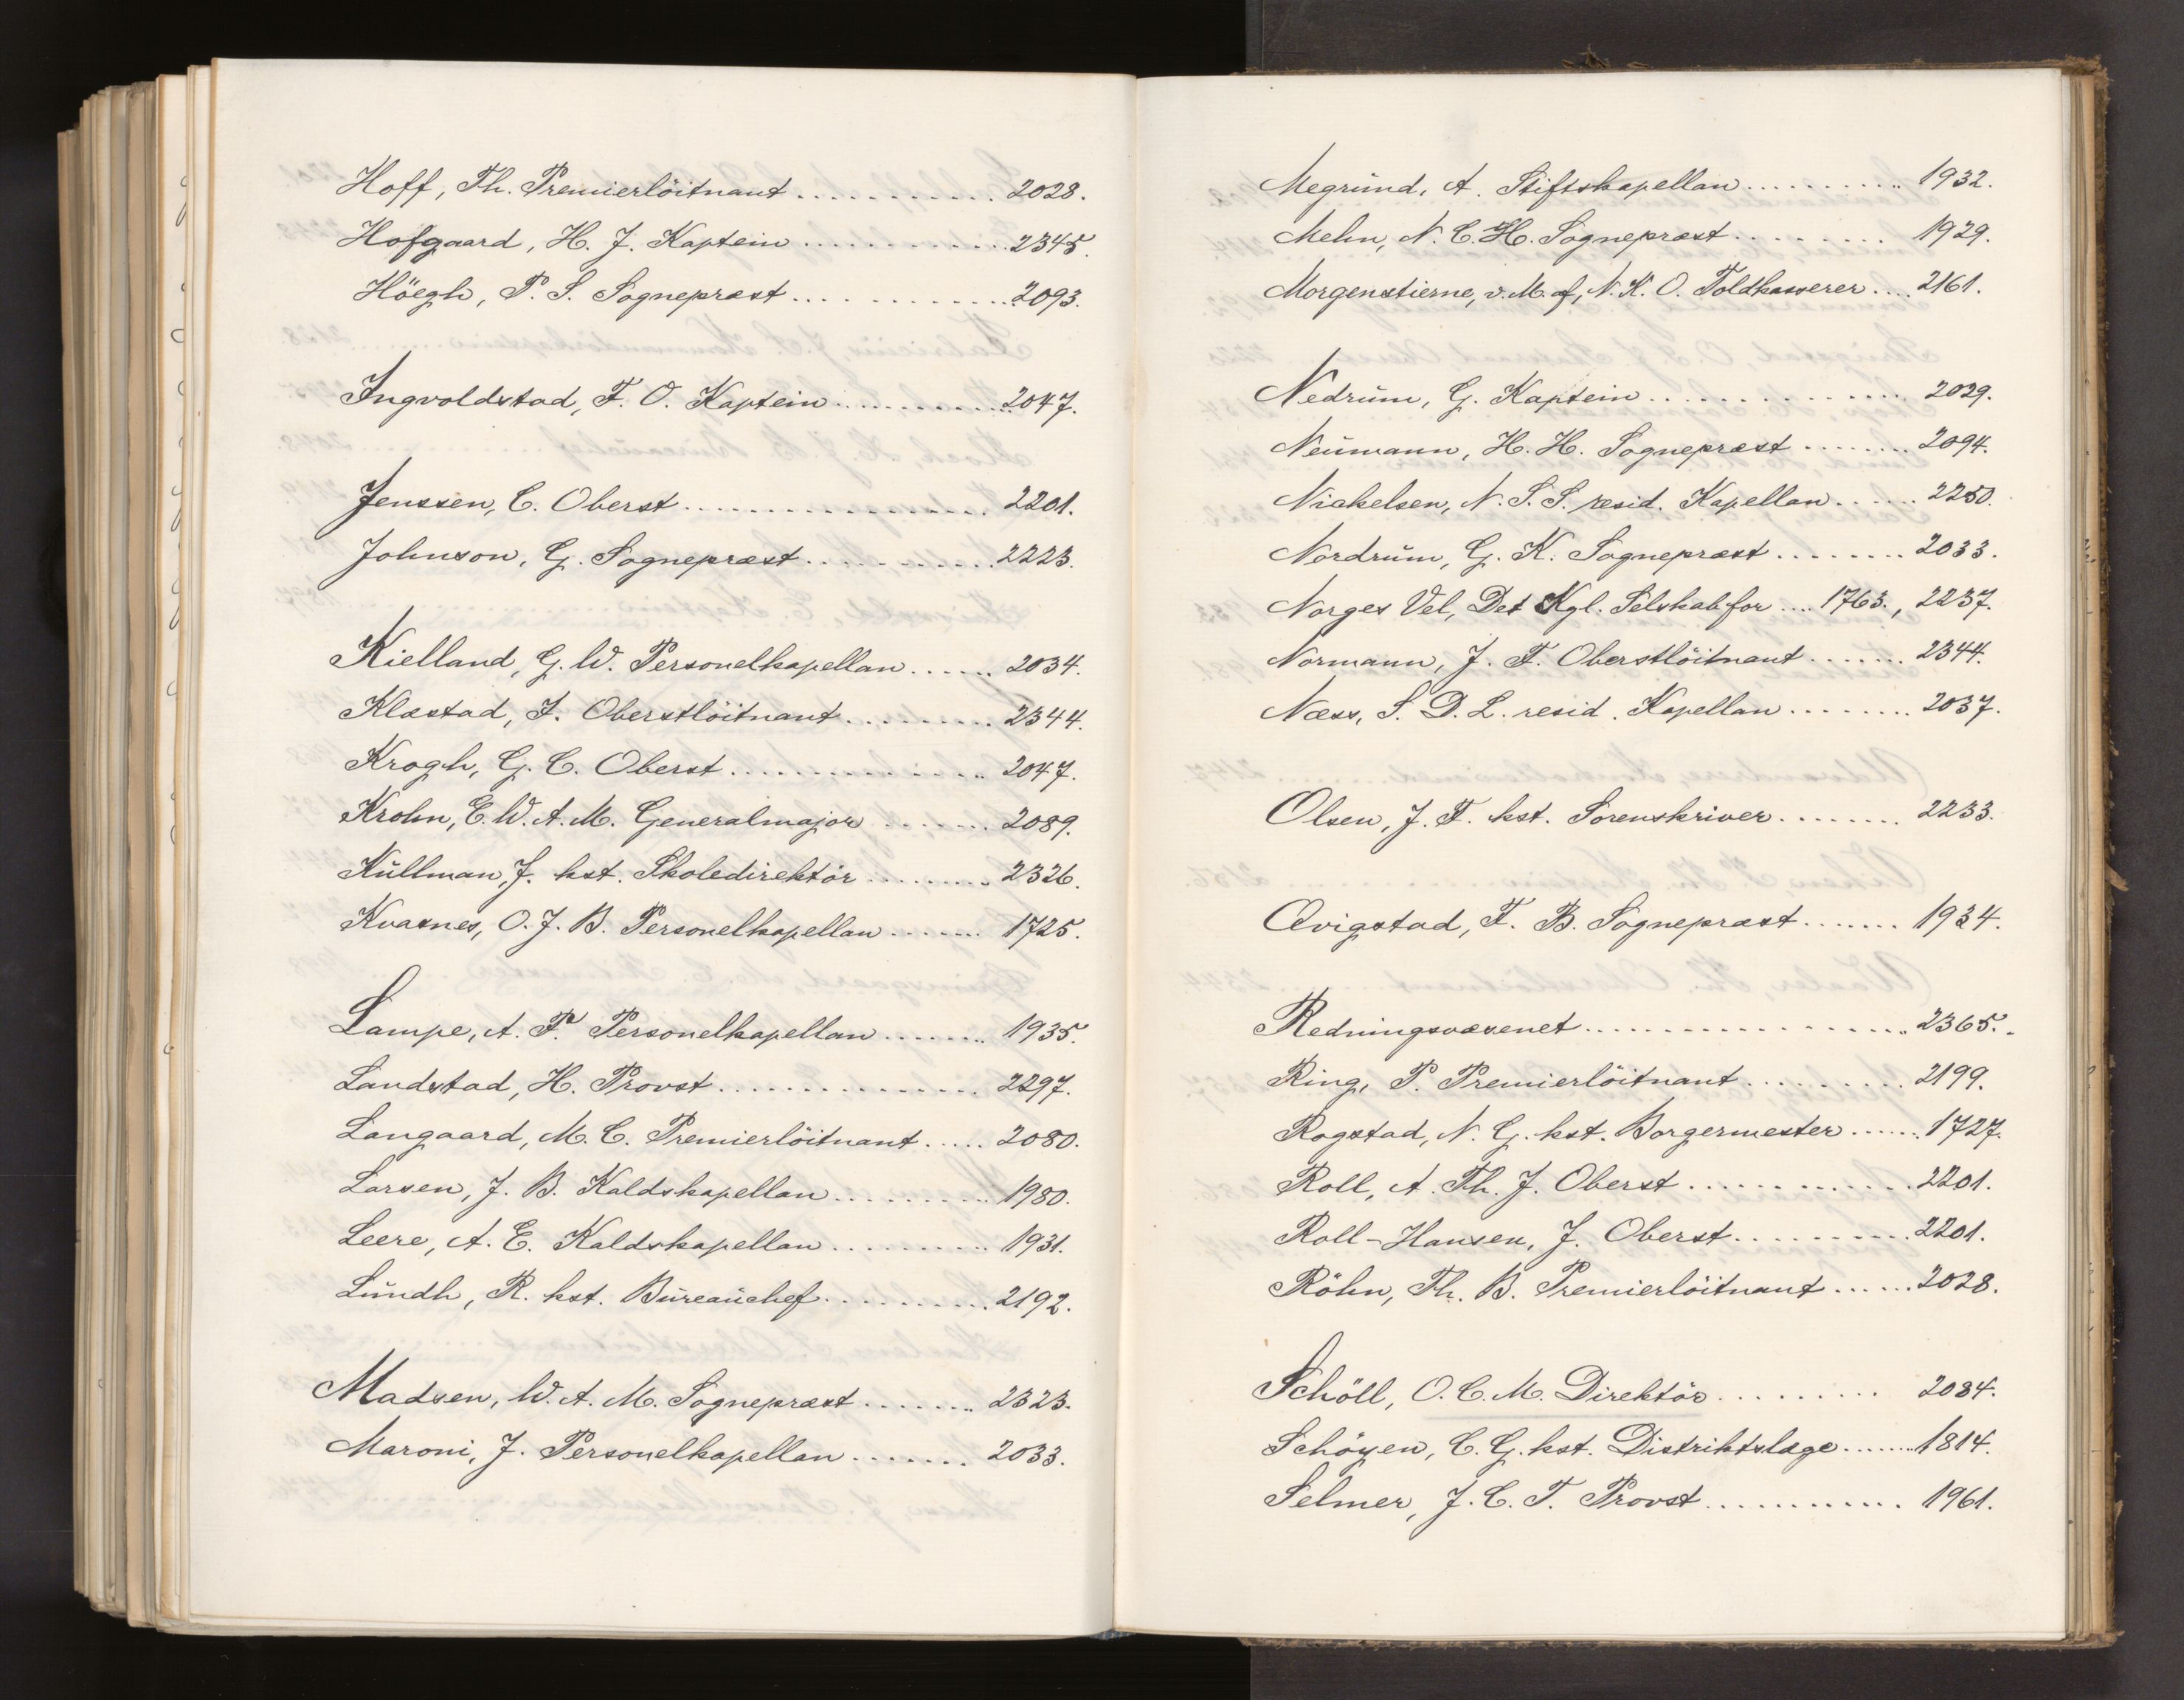 Hoff, Th. Premierlöitnant ............ 2028.
Hofgaard, H. J. Kaptein ............ 2345.
Höegh, P. S. Sognepræst ............ 2093.
Ingvoldstad, F. O. Kaptein ............ 2047.
Jenssen, C. Oberst ............ 2201.
Johnson, G. Sognepræst ............ 2223.
Kielland, G. W. Personelkapellan ...... 2034.
Klæstad, I. Oberstlöitnant ......... 2344.
Krogh, G. C. Oberst ............ 2047.
Krohn, E. W. A. M. Generalmajor ....... 2089.
Kŭllman, J. kst. Skoledirektör ......... 2326.
Kvarnes, O. J. B. Personelkapellan ....... 1725.
Lampe, A. F. Personelkapellan ........ 1935.
Landstad, H. Provst ............ 2297.
Langaard, M. C. Premierlöitnant ..... 2080.
Larsen, J. B. Kaldskapellan .......... 1980.
Leere, A. E. Kaldskapellan .......... 1931.
Lŭndh, R. kst. Bŭreaŭchef .......... 2192.
Madsen, W. A. M. Sognepræst ....... 2323.
Maroni, J. Personelkapellan ....... 2033.
Megrŭnd, A. Stiftskapellan .......... 1932.
Mehn, N. C. H. Sognepræst ........ 1929.
Morgenstierne, v. M. af, N. K. O. Toldkasserer .... 2161.
Nedrŭm, G. Kaptein ............ 2029.
Neŭmann, H. H. Sognepræst ........ 2094.
Nickelsen, N. S. S. resid. Kapellan ...... 2250.
Nordrŭm, G. K. Sognepræst ........ 2033.
Norges Vel, Det Kgl. Selskab for .... 1763., 2237.
Normann, J. F. Oberstlöitnant ....... 2344.
Næss, S. D. L. resid. Kapellan ........ 2037.
Olsen, J. F. kst. Sorenskriver ........ 2233.
Qvigstad, F. B. Sognepræst ....... 1934.
Redningsvæsenet ................. 2365.
Ring, P. Premierlöitnant .......... 2199.
Rogstad, N. G. kst. Borgermester ...... 1727.
Roll, A. Th. J. Oberst ............ 2201.
Roll-Hansen, J. Oberst .......... 2201.
Röhn, Th. B. Premierlöitnant ...... 2028.
Schöll, O. C. M. Direktör ......... 2084.
Schöyen, C. G. kst. Distriktslæge ....... 1814.
Selmer, J. C. T. Provst ............ 1961.